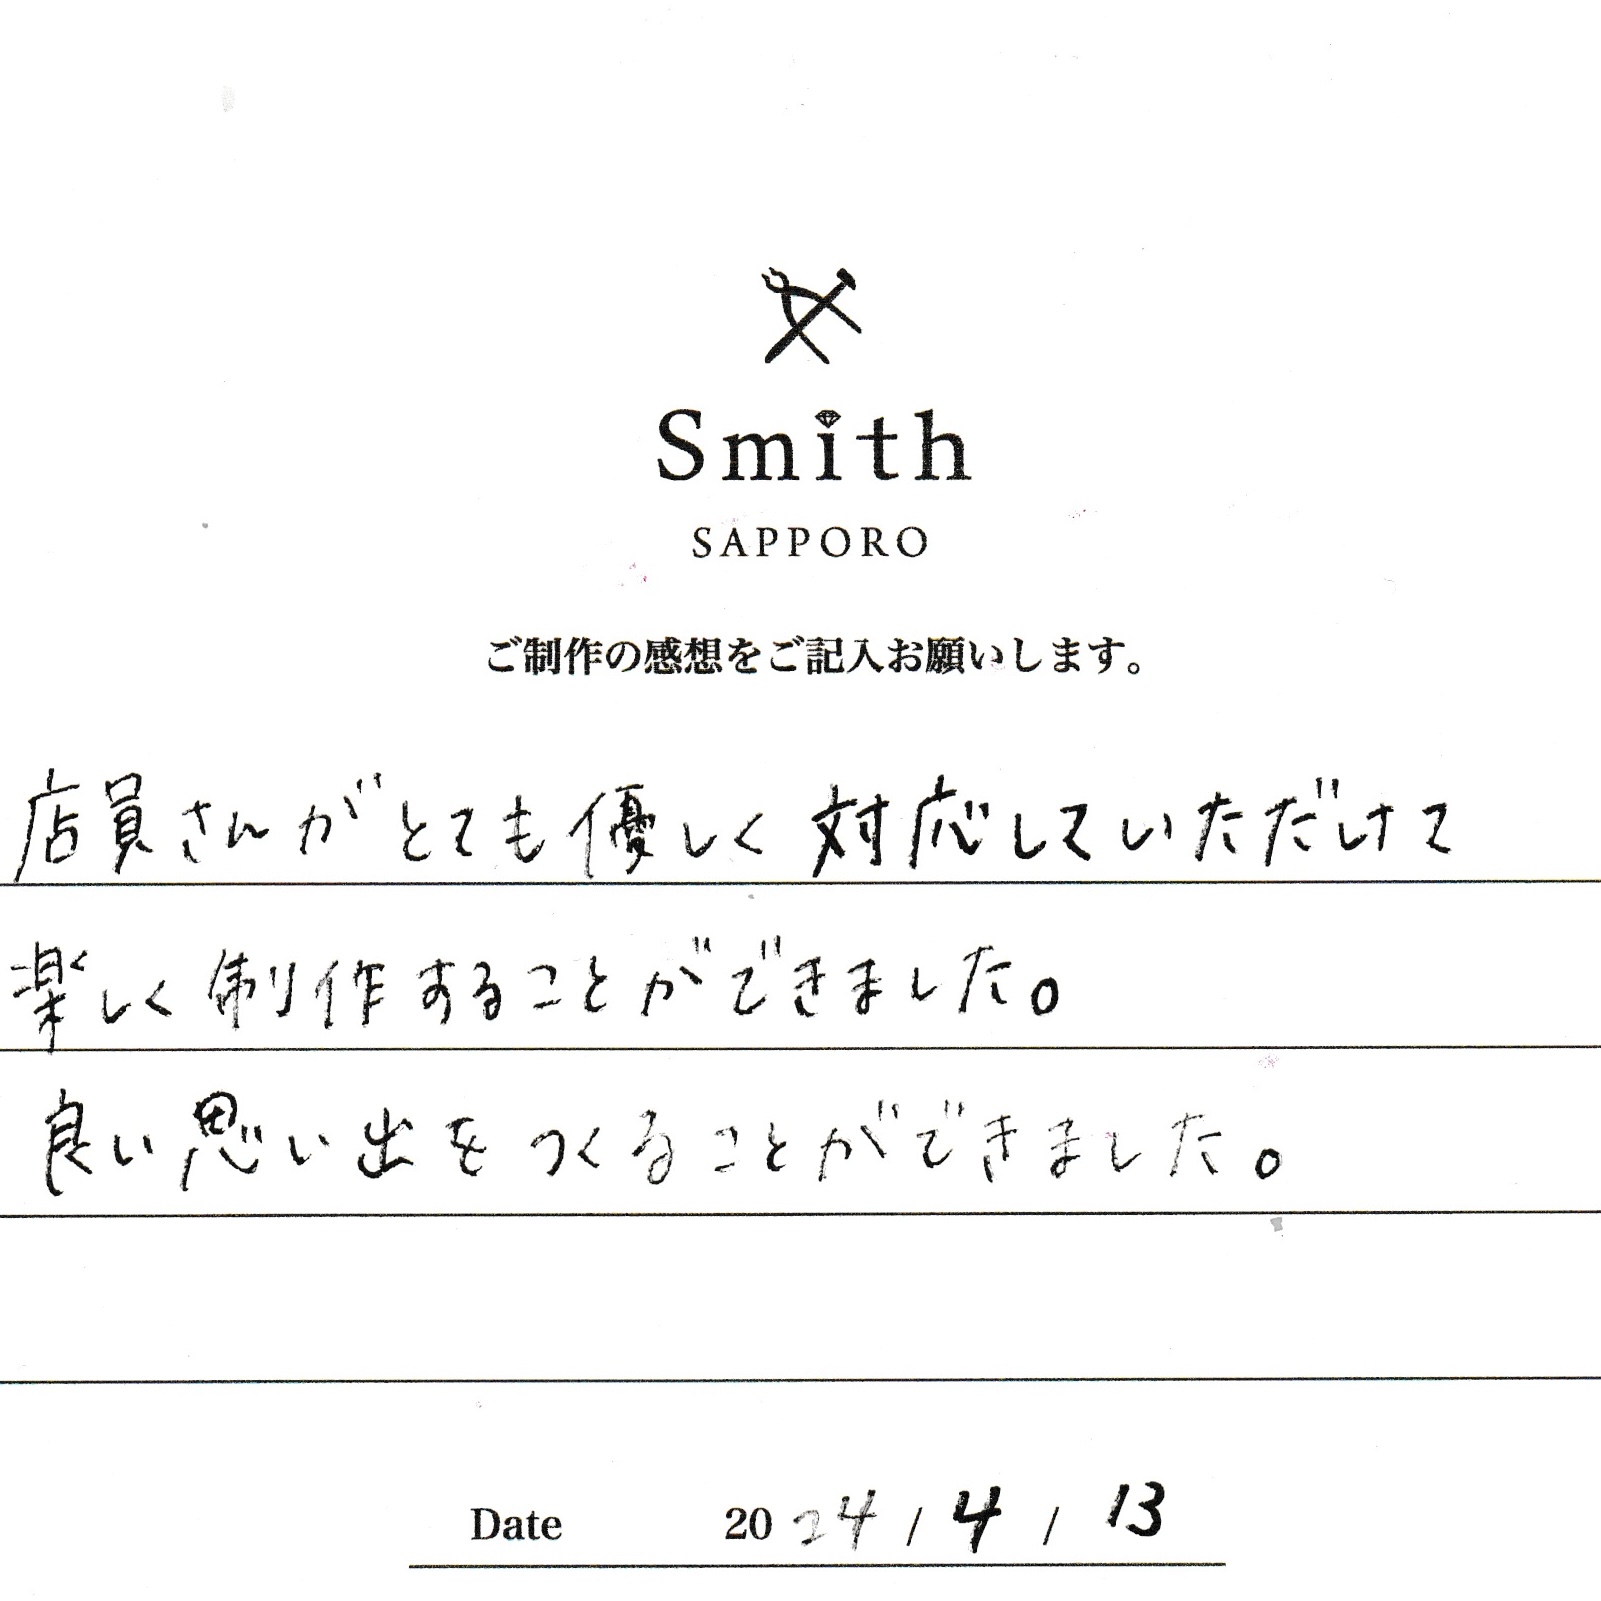 Smith
SAPPORO
ご制作の感想をご記入お願いします。
店員さんがとても優しく対応していただけて
楽しく制作することができました。
良い思い出をつくることができました。
Date 2024 / 4 / 13